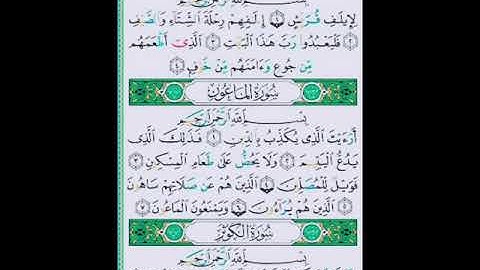 بِسْمِ ٱللَّهِ ٱلرَّحْمَٰنِ ٱلرَّحِيمِ
لِإِيلَٰفِ قُرَيْشٍ ١ إِۦلَٰفِهِمْ رِحْلَةَ ٱلشِّتَآءِ وَٱلصَّيْفِ
٢ فَلْيَعْبُدُوا۟ رَبَّ هَٰذَا ٱلْبَيْتِ ٣ ٱلَّذِىٓ أَطْعَمَهُم
مِّن جُوعٍ وَءَامَنَهُم مِّنْ خَوْفٍۭ ٤
سُورَةُ المَاعُونِ
بِسْمِ ٱللَّهِ ٱلرَّحْمَٰنِ ٱلرَّحِيمِ
أَرَءَيْتَ ٱلَّذِى يُكَذِّبُ بِٱلدِّينِ ١ فَذَٰلِكَ ٱلَّذِى
يَدُعُّ ٱلْيَتِيمَ ٢ وَلَا يَحُضُّ عَلَىٰ طَعَامِ ٱلْمِسْكِينِ ٣
فَوَيْلٌ لِّلْمُصَلِّينَ ٤ ٱلَّذِينَ هُمْ عَن صَلَاتِهِمْ سَاهُونَ
٥ ٱلَّذِينَ هُمْ يُرَآءُونَ ٦ وَيَمْنَعُونَ ٱلْمَاعُونَ ٧
سُورَةُ الكَوْثَرِ
بِسْمِ ٱللَّهِ ٱلرَّحْمَٰنِ ٱلرَّحِيمِ